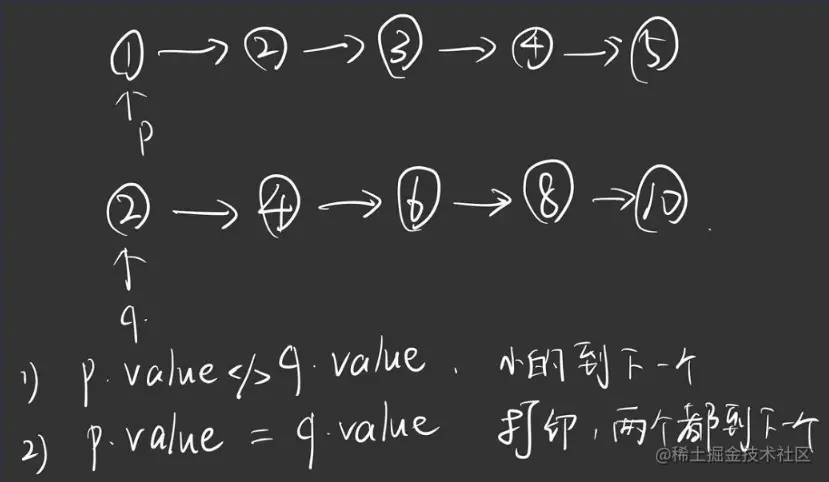 ① → ② → ③ → ④ → ⑤
↑
p
② → ④ → ⑥ → ⑧ → ⑩
↑
q.
1) p.value </> q.value. 小的到下一个
2) p.value = q.value 打印,两个都到下个
@稀土掘金技术社区